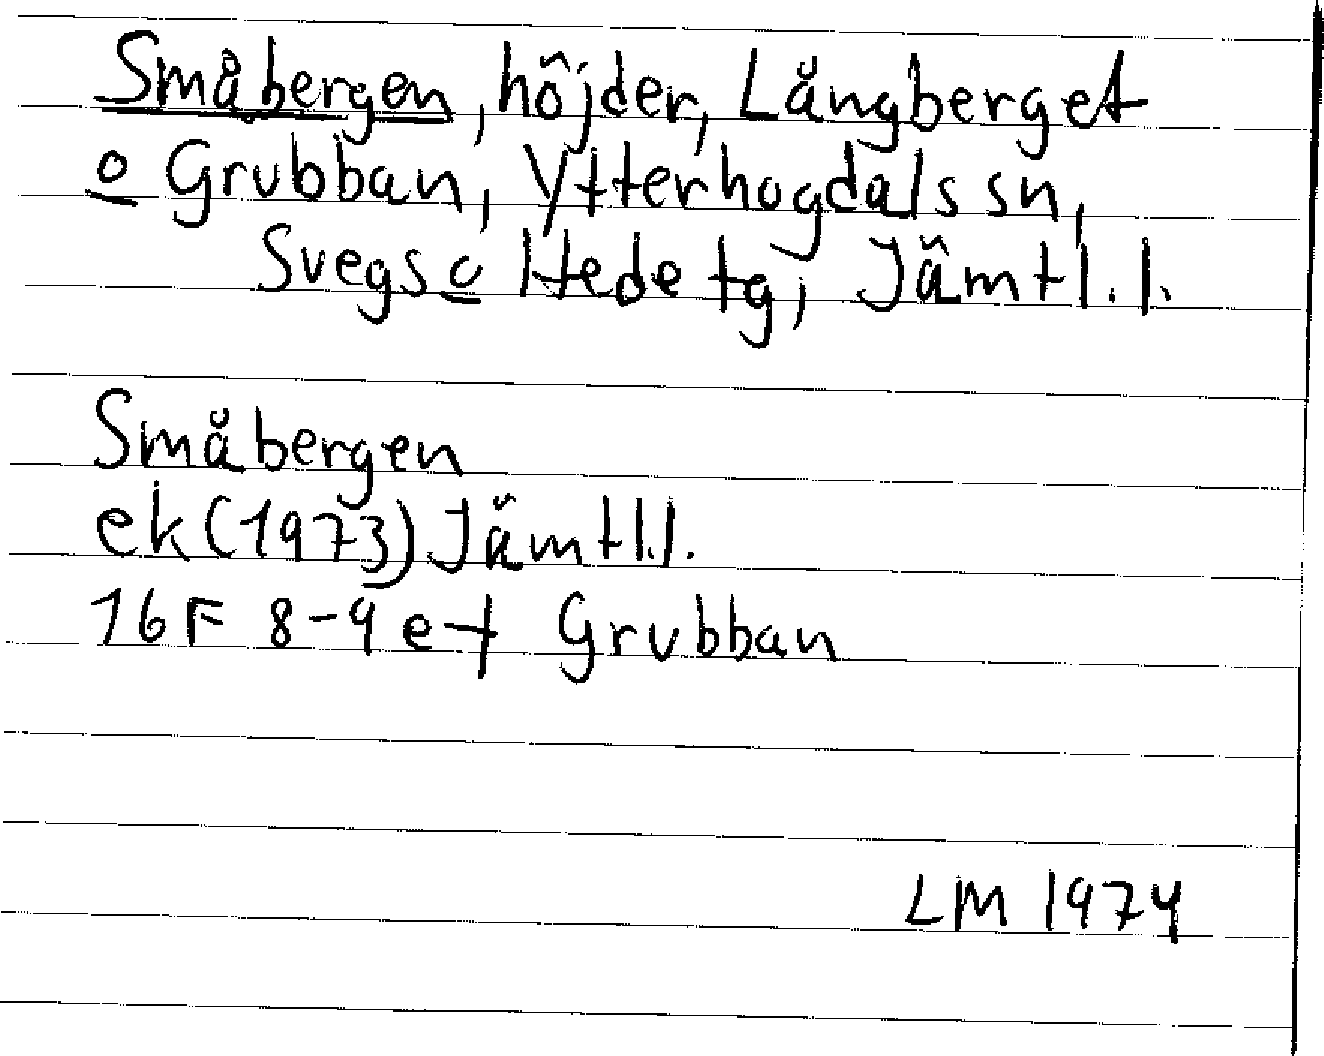 Småbergen, höjder, Långberget
o Grubban, Ytterhogdals sn,
Svegs o Hede tg, Jämtl. l.
Småbergen
ek (1973) Jämtl.l.
16F 8-9 e-f Grubban
LM 1974